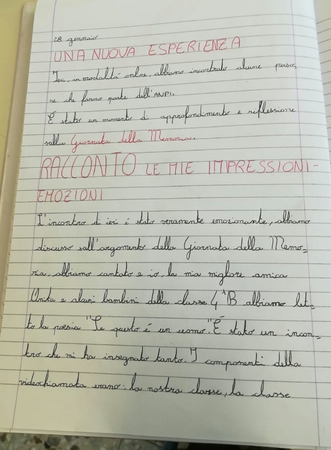 28 gennaio
UNA NUOVA ESPERIENZA
Ieri, in modalità online, abbiamo incontrato alcune perso,
ne che fanno parte dell'ANPI.
È stato un momento di approfondimento e riflessione
sulla Giornata della Memoria.
RACCONTO LE MIE IMPRESSIONI-
EMOZIONI
L'incontro di ieri è stato veramente emozionante, abbiamo
discusso sull'argomento della Giornata della Memo,
ria, abbiamo cantato e io, la mia migliore amica
e alcuni bambini della classe 4ªB abbiamo let,
to la poesia "Se questo è un uomo". È stato un incon,
tro che mi ha insegnato tanto. I componenti della
videochiamata erano: la nostra classe, la classe